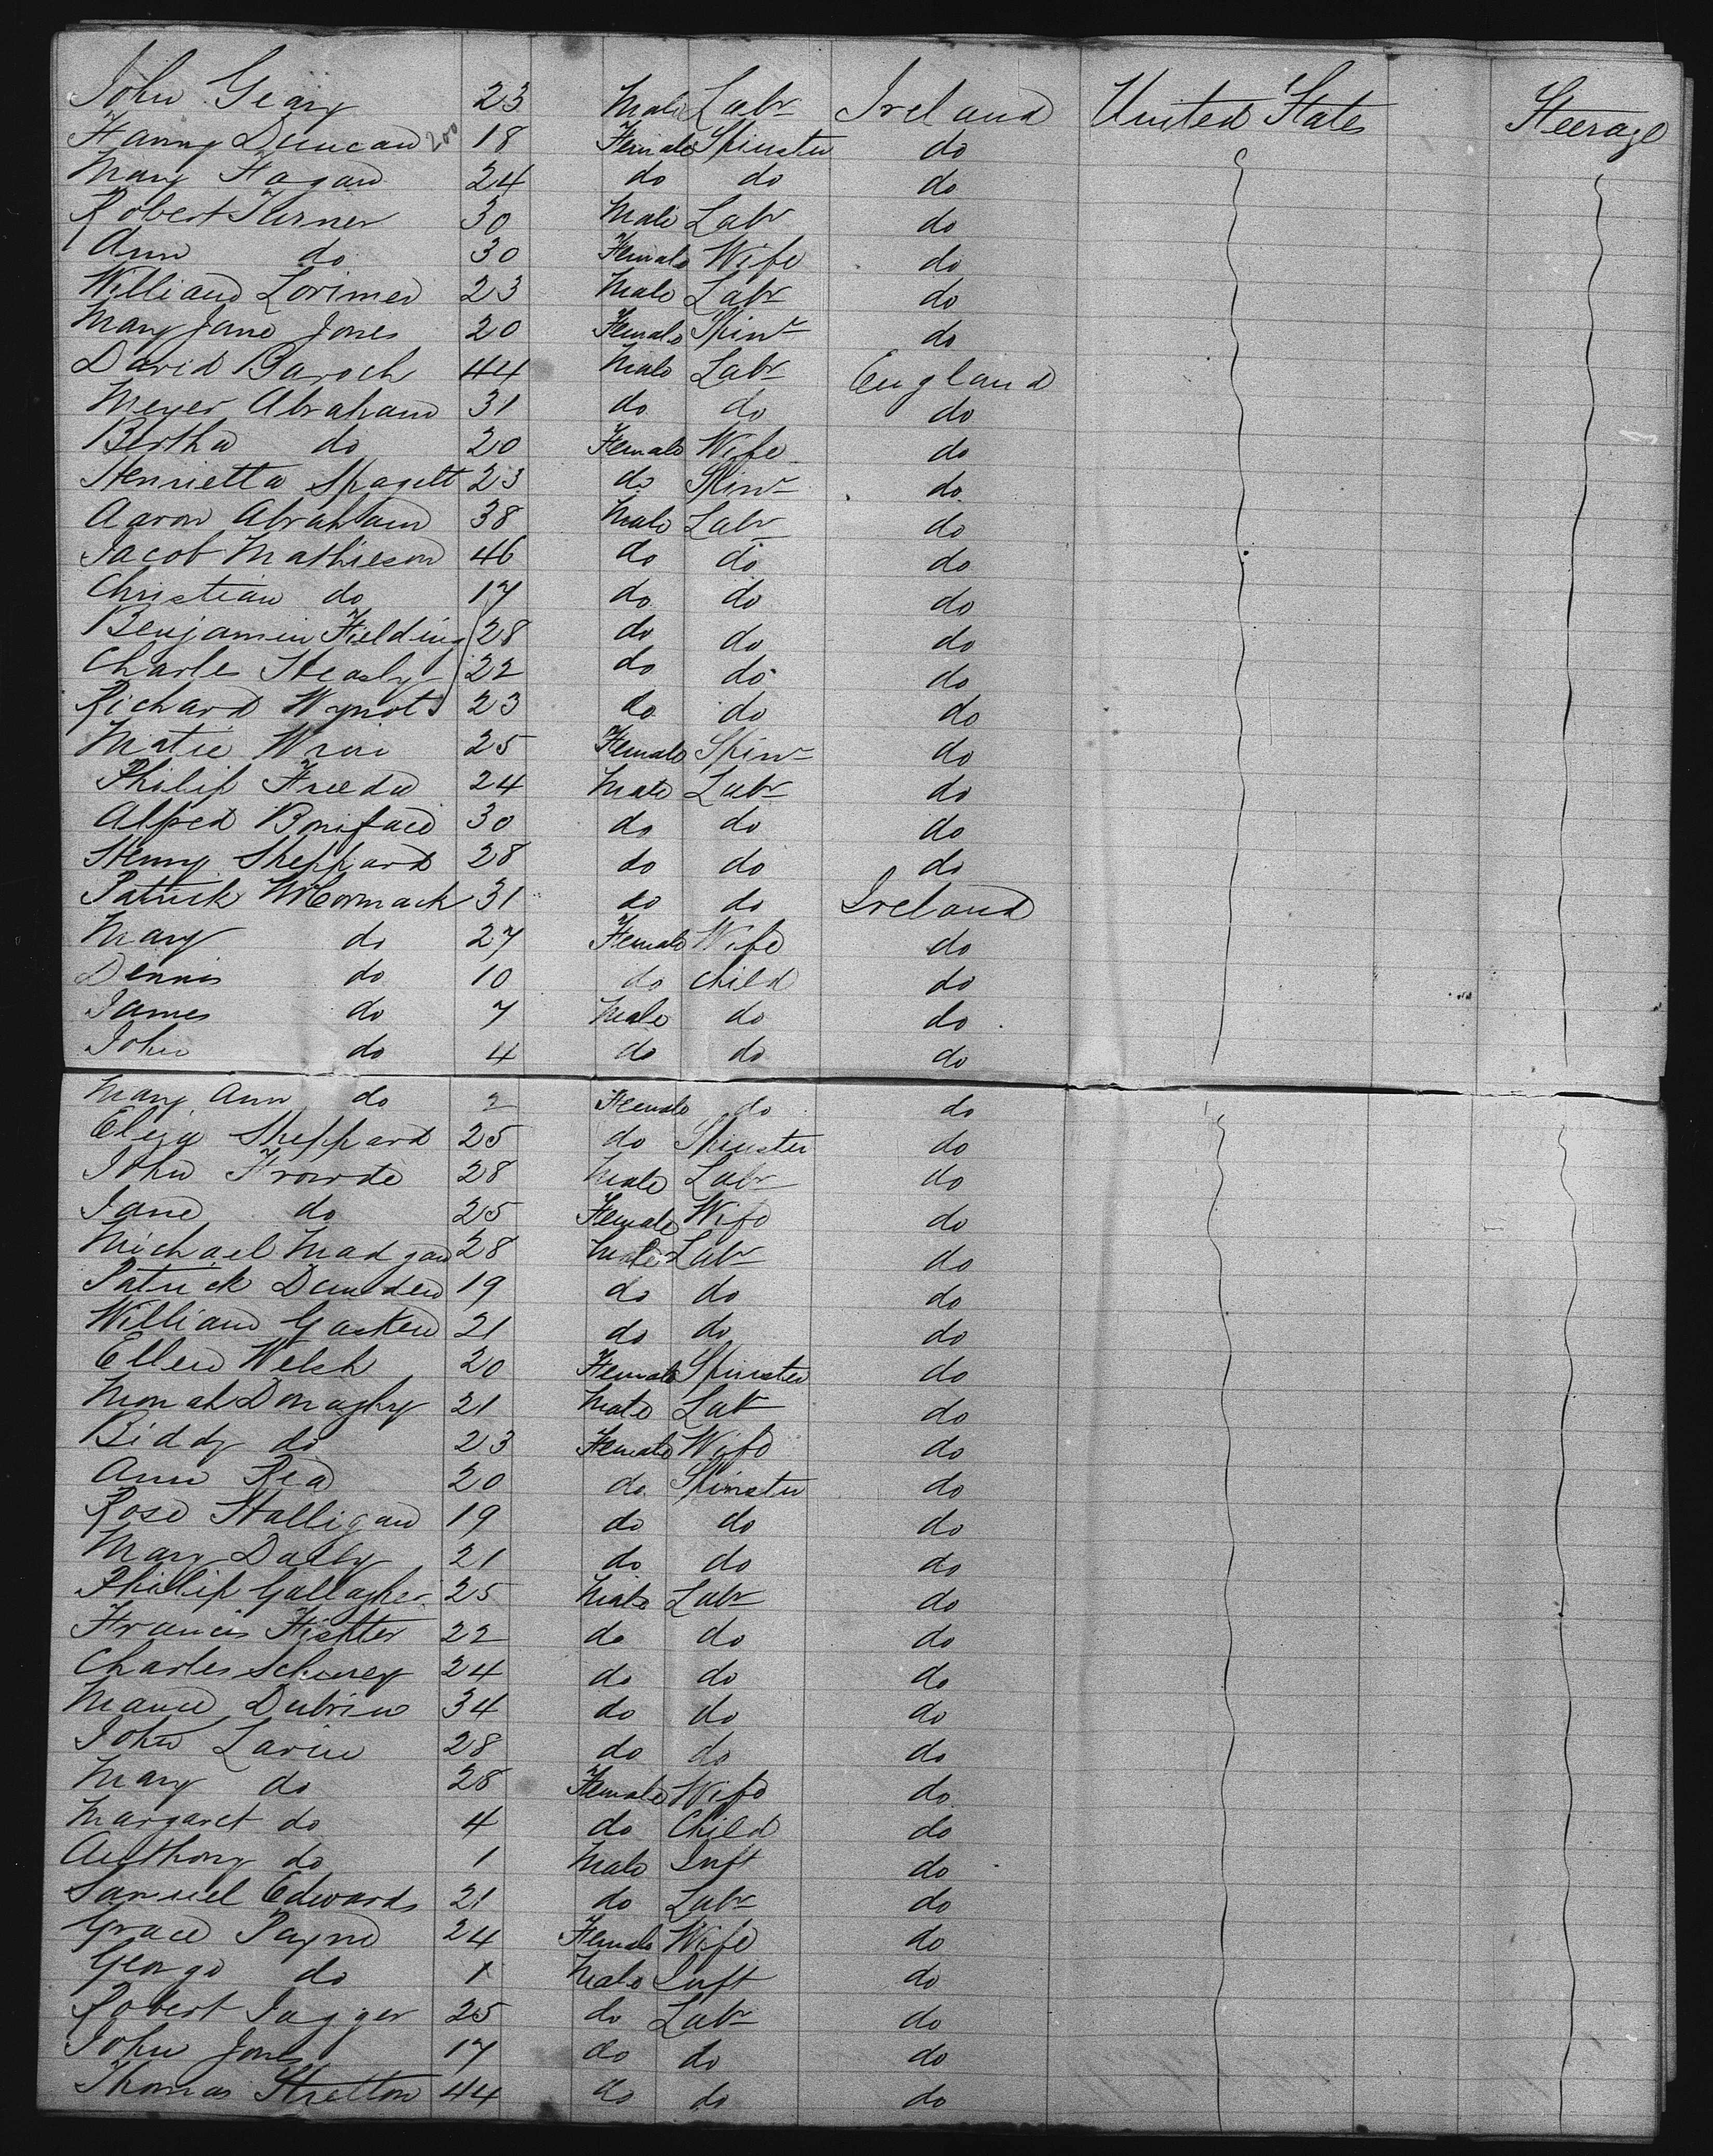 John Geary 23 Male Labr Ireland United States Steerage
Fanny Duncan 200 18 Female Spinster do
Mary Hagan 24 do do do
Robert Turner 30 Male Labr do
Ann do 30 Female Wife do
William Lorimer 23 Male Labr do
Mary Jane Jones 20 Female Spinr do
David Baroch 44 Male Labr England
Meyer Abraham 31 do do do
Bertha do 20 Female Wife do
Henrietta 23 do Spinr do
Aaron Abraham 38 Male Labr do
Jacob Mathieson 46 do do do
Christian do 17 do do do
Benjamin Fielding 28 do do do
Charles Heasly 22 do do do
Richard 23 do do do
Matie 25 Female Spinr do
Philip Freeda 24 Male Labr do
Alfred Boniface 30 do do do
Henry Sheppard 28 do do do
Patrick McCormack 31 do do Ireland
Mary do 27 Female Wife do
Dennis do 10 do child do
James do 7 Male do do
John do 4 do do do
Mary Ann do 2 Female do do
Eliza Sheppard 25 do Spinster do
John Frowde 28 Male Labr do
Jane do 25 Female Wife do
Michael Madgan 28 Male Labr do
Patrick Dunden 19 do do do
William Gasken 21 do do do
Ellen Welsh 20 Female Spinster do
Donaghy 21 Male Labr do
Biddy do 23 Female Wife do
Ann Rea 20 do Spinster do
Rose Halligan 19 do do do
Mary Dally 21 do do do
Phillip Gallagher 25 Male Labr do
Francis 22 do do do
Charles 24 do do do
34 do do do
John Lavin 28 do do do
Mary do 28 Female Wife do
Margaret do 4 do Child do
Anthony do 1 Male Inft do
Samuel Edwards 21 do Labr do
Grace Payne 24 Female Wife do
George do 1 Male Inft do
Robert Jagger 25 do Labr do
John Jones 17 do do do
Thomas Stretton 44 do do do